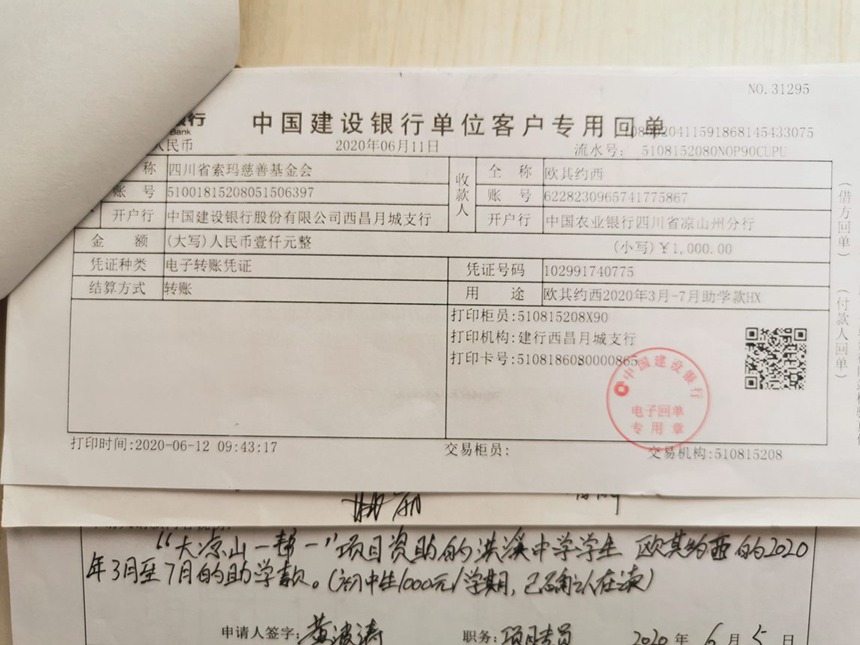 NO.31295
行
Bank
中国建设银行单位客户专用回单
人民币
2020年06月11日
流水号: 5108152080N0P90CUPU
称 四川省索玛慈善基金会
收款人
全 称 欧其约西
账 号 51001815208051506397
账 号 6228230965741775867
开户行 中国建设银行股份有限公司西昌月城支行
开户行 中国农业银行四川省凉山州分行
金 额 (大写)人民币壹仟元整
(小写)¥1,000.00
凭证种类 电子转账凭证
凭证号码 102991740775
结算方式 转账
用 途 欧其约西2020年3月-7月助学款HX
打印柜员:510815208X90
打印机构:建行西昌月城支行
打印卡号:5108186080000865
中国建设银行
电子回单
专用章
(借方回单)
(付款人回单)
打印时间:2020-06-12 09:43:17
交易柜员:
交易机构:510815208
“大凉山一帮一”项目资助的洪溪中学学生 欧其约西的2020
年3月至7月的助学款。(初中生1000元/学期,已确认在读)
申请人签字: 黄波涛
职务: 项目专员
2020年6月5日